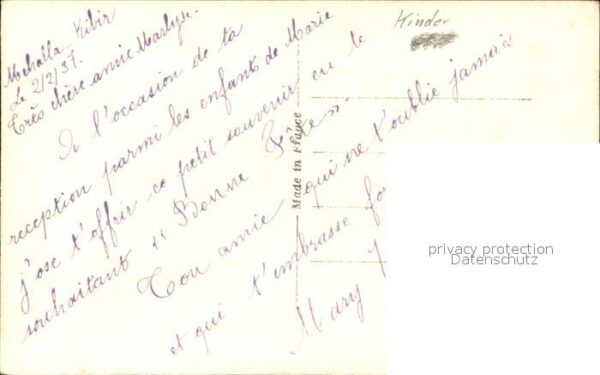 Mehalla Kibir
Le 2/2/37.
Très chère amie Marlyse.
A l'occasion de ta
reception parmi les enfants de Marie
j'ose t'offrir ce petit souvenir en te
souhaitant " Bonne Fête ".
Ton amie qui ne t'oublie jamais
et qui t'embrasse fo
Mary
Kinder
Made in France
privacy protection
Datenschutz